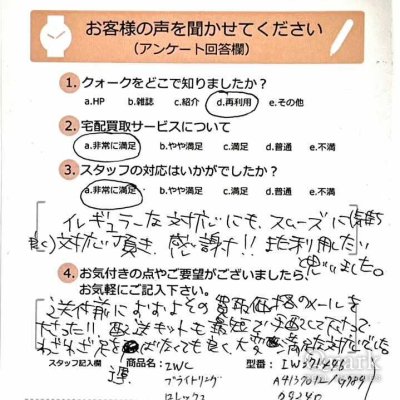 お客様の声を聞かせてください
(アンケート回答欄)
1. クォークをどこで知りましたか？
a.HP b.雑誌 c.紹介 d.再利用 e.その他
2. 宅配買取サービスについて
a.非常に満足 b.やや満足 c.満足 d.普通 e.不満
3. スタッフの対応はいかがでしたか？
a.非常に満足 b.やや満足 c.満足 d.普通 e.不満
イレギュラーな対応にも、スムーズに
対応頂き、感謝!! また利用したい
と思いました。
4. お気付きの点やご要望がございましたら、
お気軽にご記入下さい。
送付前におおよその買取価格のメールを
下さったり、配送キットも最短で
わざわざ足を運ばなくても良く、大変満足な対応でした
スタッフ記入欄 商品名： IWC 型番： IW371446
ブライトリング
ロレックス 69240